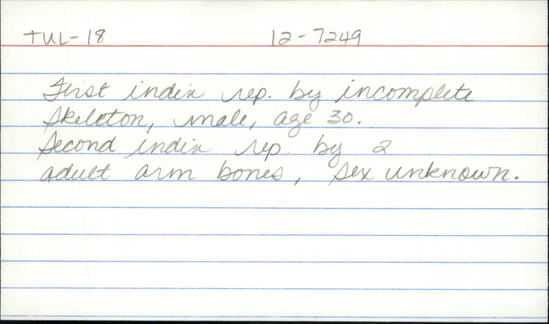 TUL-18 12-7249
First indiv rep. by incomplete
skeleton, male, age 30.
Second indiv rep. by 2
adult arm bones, sex unknown.